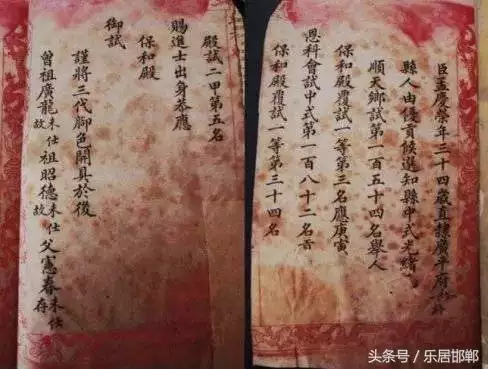 臣孟慶榮年三十四歲直隷廣平府
縣人由優貢候選知縣中式光緒
順天鄉試第一百五十四名舉人
保和殿覆試一等第三名應庚寅
恩科會試中式第一百八十二名
保和殿覆試一等第三十四名
殿試二甲第五名
賜進士出身恭應
御試
保和殿
謹將三代脚色開具於後
曾祖廣龍未仕故 祖昭德未仕故 父憲春未仕存
头条号 / 乐居邯郸